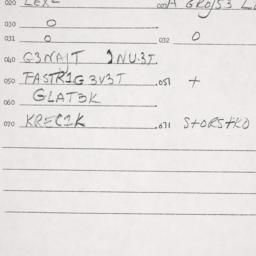 020 LEXL 021 A GROJS3 L
030 O
031 O 032 O
040 G3NAJT INU3T
050 FASTR1G3V3T .051 +
060 GLAT3K
070 KREC1K .071 S+ORS+KO